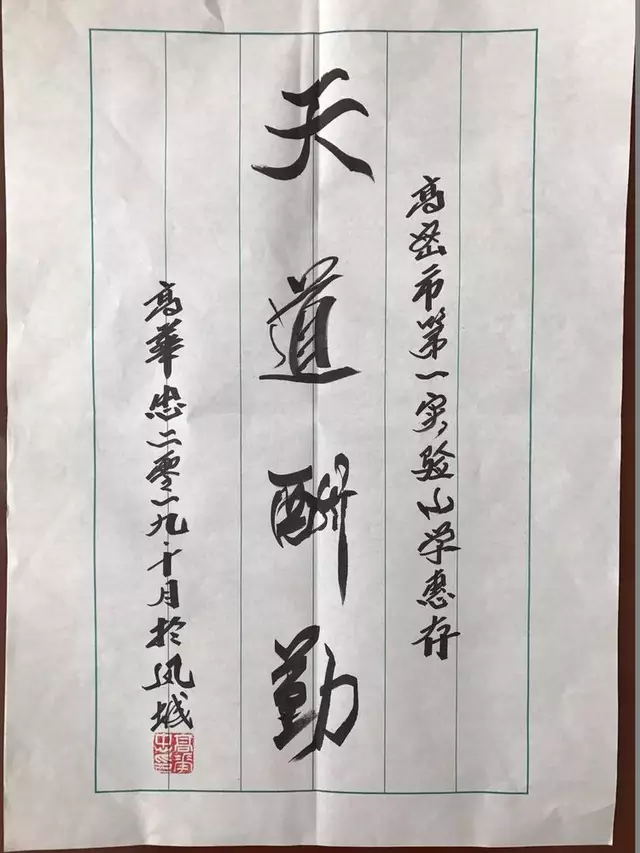 高密市第一实验小学惠存
天道酬勤
高華忠二零一九·十月於凤城
高華忠印